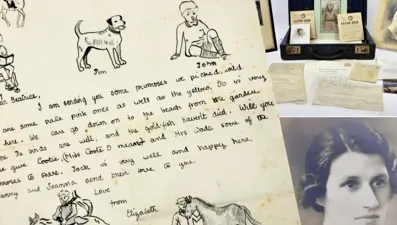 Tim
John
ar Beatrice,
I am sending you some primroses we picked, wild
are some pale pink ones as well as the yellow. It is very
here. We can go down on to the beach from the garden.
The birds are well, and the goldfish haven't died. Will you
give Cootie (Miss Coote I mean) and Mrs Wade some of the
primroses to share. Jock is very well and happy here.
and Joanna send their love to you.
Love
from
Elizabeth